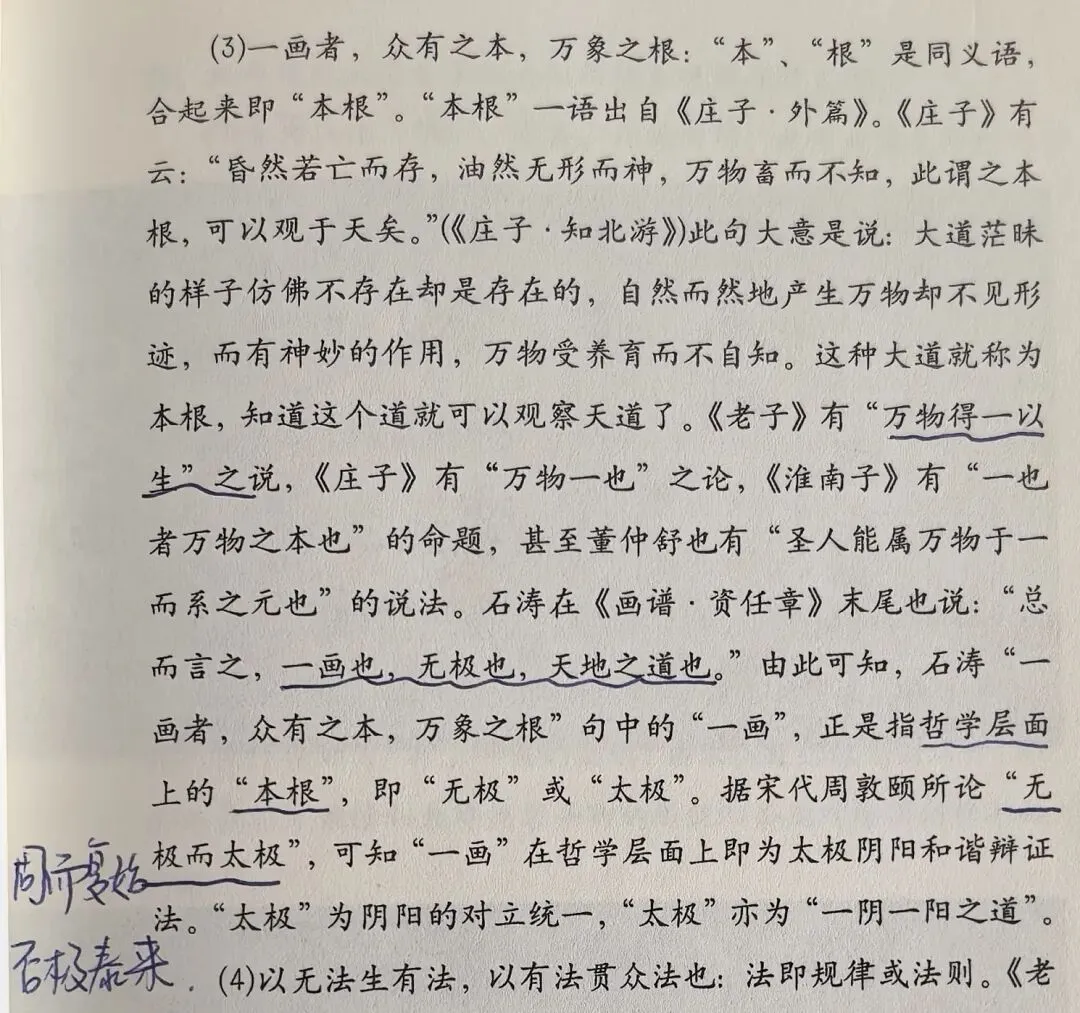 (3)一画者，众有之本，万象之根：“本”、“根”是同义语，
合起来即“本根”。“本根”一语出自《庄子·外篇》。《庄子》有
云：“昏然若亡而存，油然无形而神，万物畜而不知，此谓之本
根，可以观于天矣。”(《庄子·知北游》)此句大意是说：大道茫昧
的样子仿佛不存在却是存在的，自然而然地产生万物却不见形
迹，而有神妙的作用，万物受养育而不自知。这种大道就称为
本根，知道这个道就可以观察天道了。《老子》有“万物得一以
生”之说，《庄子》有“万物一也”之论，《淮南子》有“一也
者万物之本也”的命题，甚至董仲舒也有“圣人能属万物于一
而系之元也”的说法。石涛在《画谱·资任章》末尾也说：“总
而言之，一画也，无极也，天地之道也。”由此可知，石涛“一
画者，众有之本，万象之根”句中的“一画”，正是指哲学层面
上的“本根”，即“无极”或“太极”。据宋代周敦颐所论“无
极而太极”，可知“一画”在哲学层面上即为太极阴阳和谐辩证
周而复始
法。“太极”为阴阳的对立统一，“太极”亦为“一阴一阳之道”。
否极泰来.
(4)以无法生有法，以有法贯众法也：法即规律或法则。《老